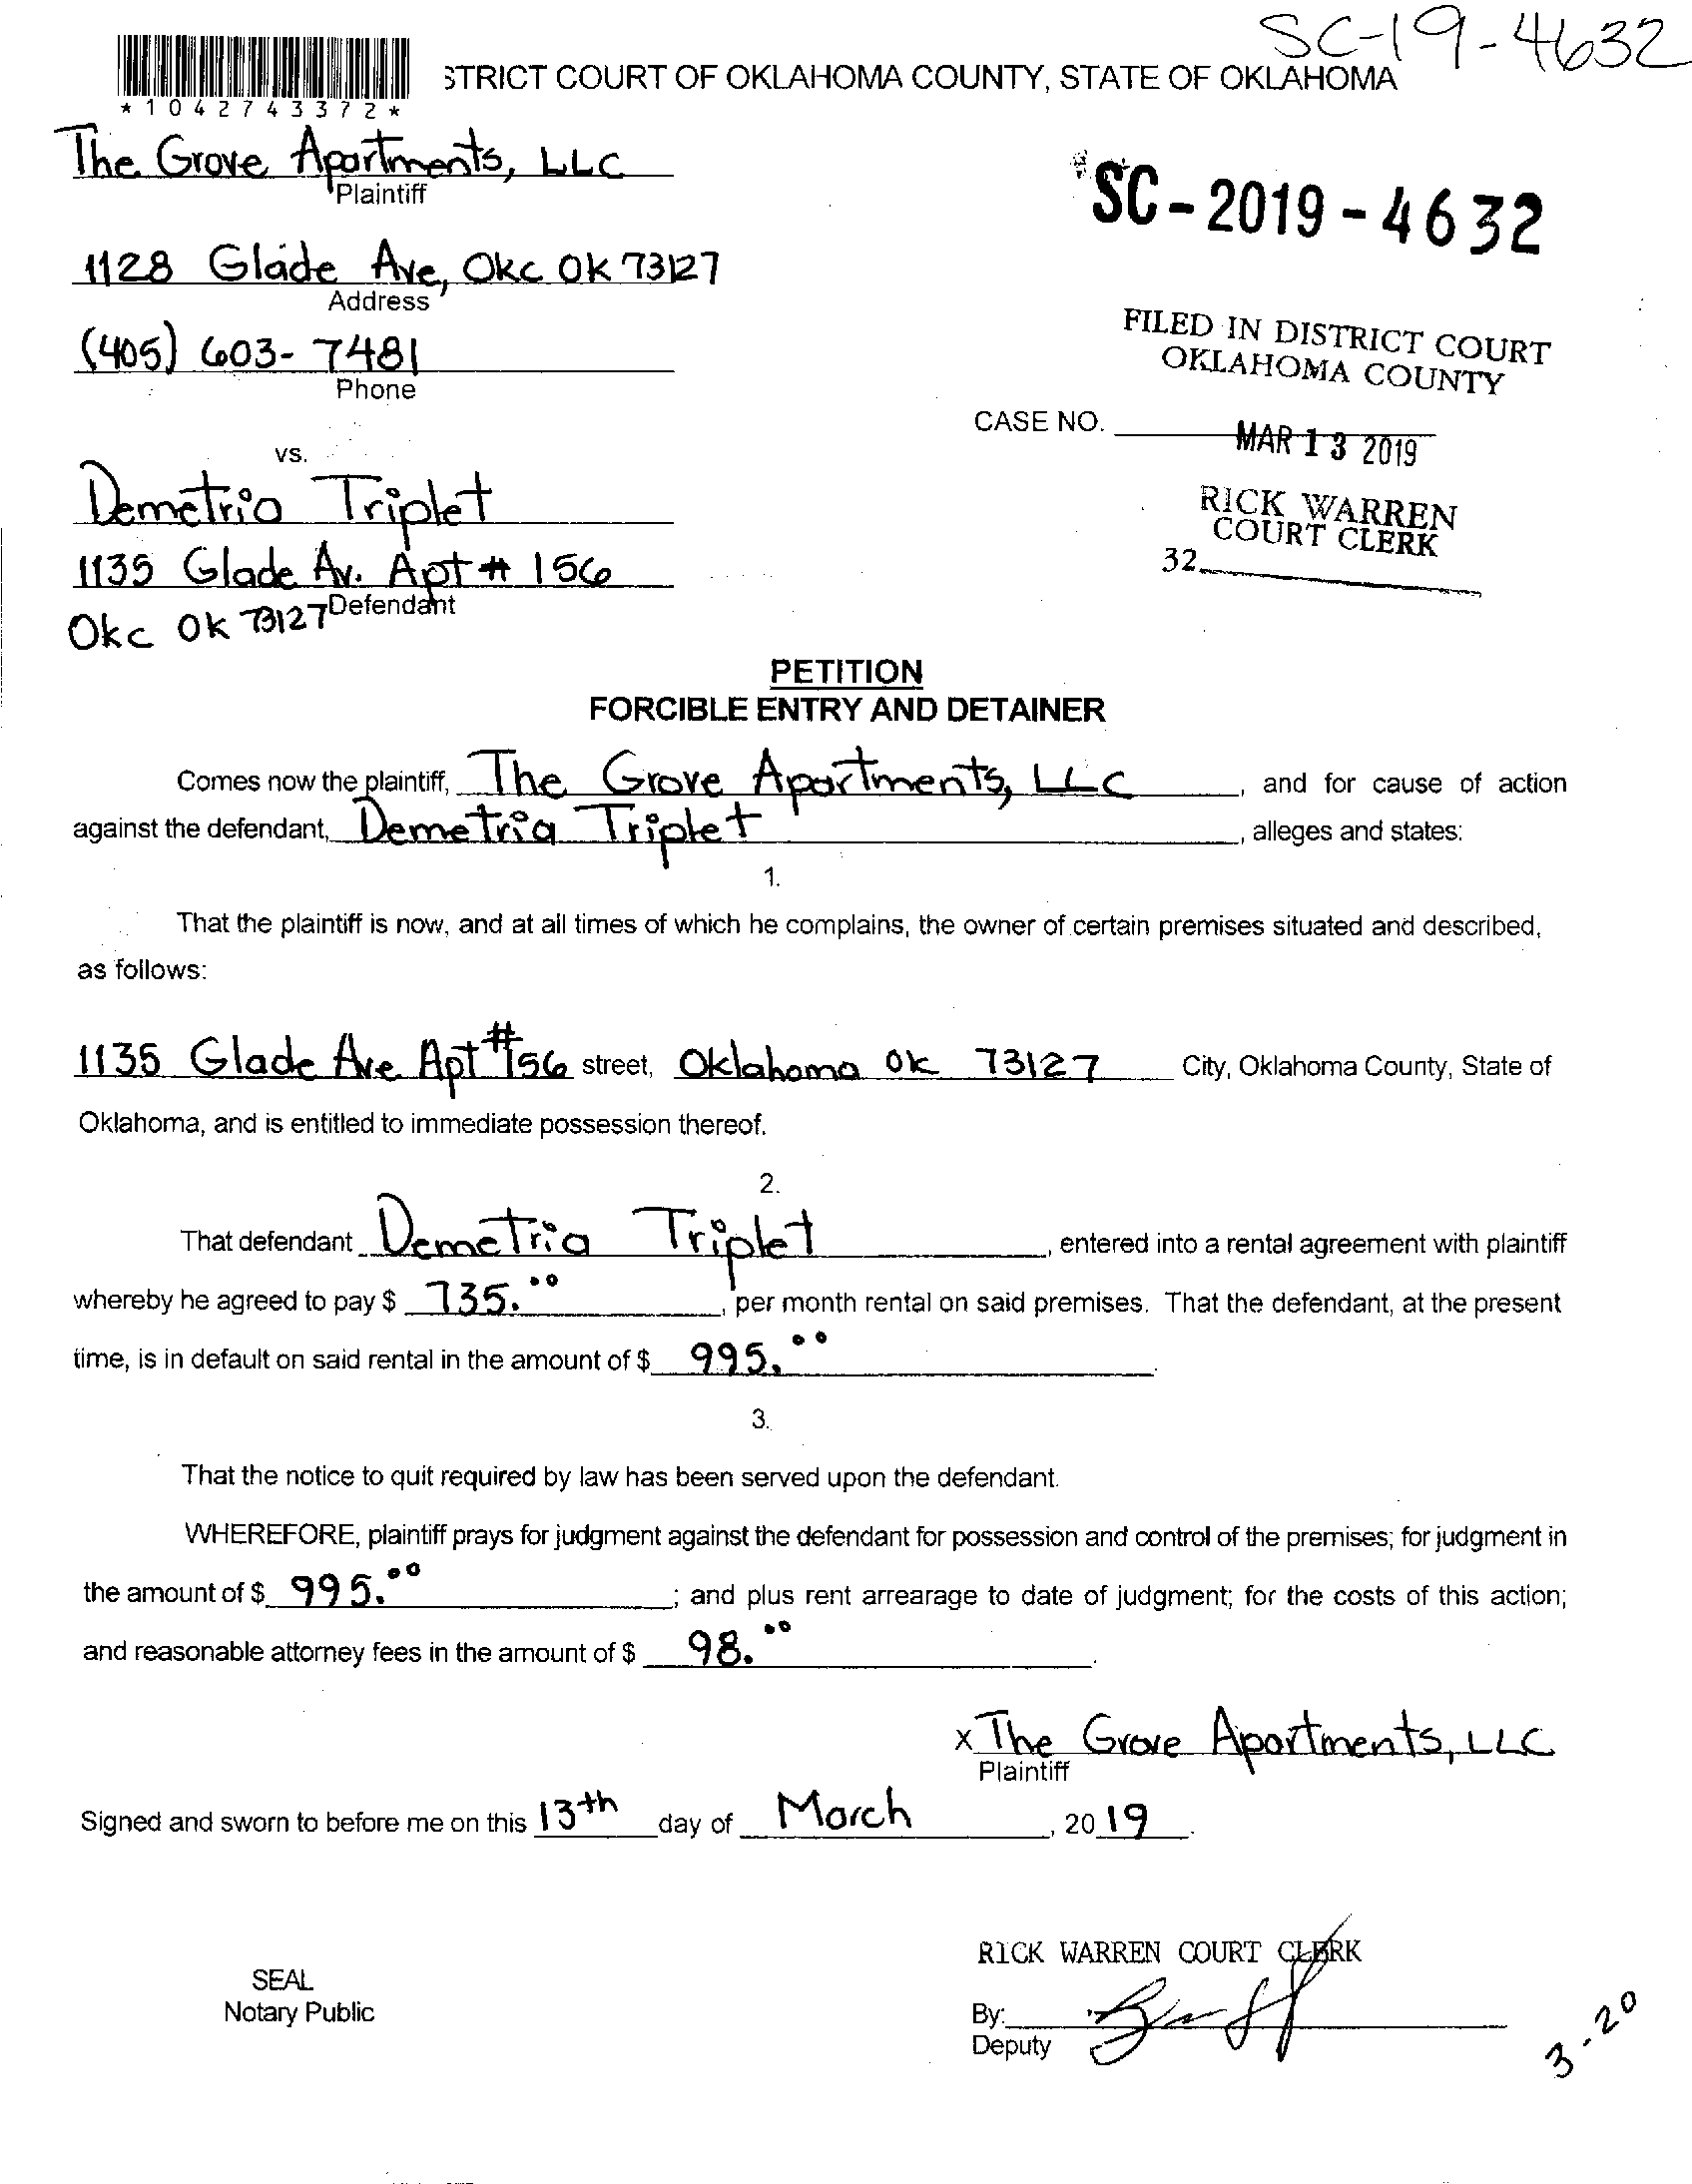 SC-19-4632
STRICT COURT OF OKLAHOMA COUNTY, STATE OF OKLAHOMA
*1042743372*
The Grove Apartments, LLC
Plaintiff
SC-2019-4632
1128 Glade Ave, Okc OK 73127
Address
(405) 603-7481
Phone
FILED IN DISTRICT COURT
OKLAHOMA COUNTY
CASE NO.
MAR 13 2019
vs.
RICK WARREN
COURT CLERK
32
Demetria Triplet
1135 Glade Av. Apt # 156
Defendant
Okc Ok 73127
PETITION
FORCIBLE ENTRY AND DETAINER
Comes now the plaintiff, The Grove Apartments, LLC, and for cause of action
against the defendant, Demetria Triplet, alleges and states:
1.
That the plaintiff is now, and at all times of which he complains, the owner of certain premises situated and described,
as follows:
1135 Glade Ave Apt #156 street, Oklahoma OK 73127 City, Oklahoma County, State of
Oklahoma, and is entitled to immediate possession thereof.
2.
That defendant Demetria Triplet, entered into a rental agreement with plaintiff
whereby he agreed to pay $ 735.00, per month rental on said premises. That the defendant, at the present
time, is in default on said rental in the amount of $ 995.00.
3.
That the notice to quit required by law has been served upon the defendant.
WHEREFORE, plaintiff prays for judgment against the defendant for possession and control of the premises; for judgment in
the amount of $ 995.00; and plus rent arrearage to date of judgment; for the costs of this action;
and reasonable attorney fees in the amount of $ 98.00.
x The Grove Apartments, LLC
Plaintiff
Signed and sworn to before me on this 13th day of March, 2019.
RICK WARREN COURT CLERK
SEAL
Notary Public
By:
Deputy
3-20